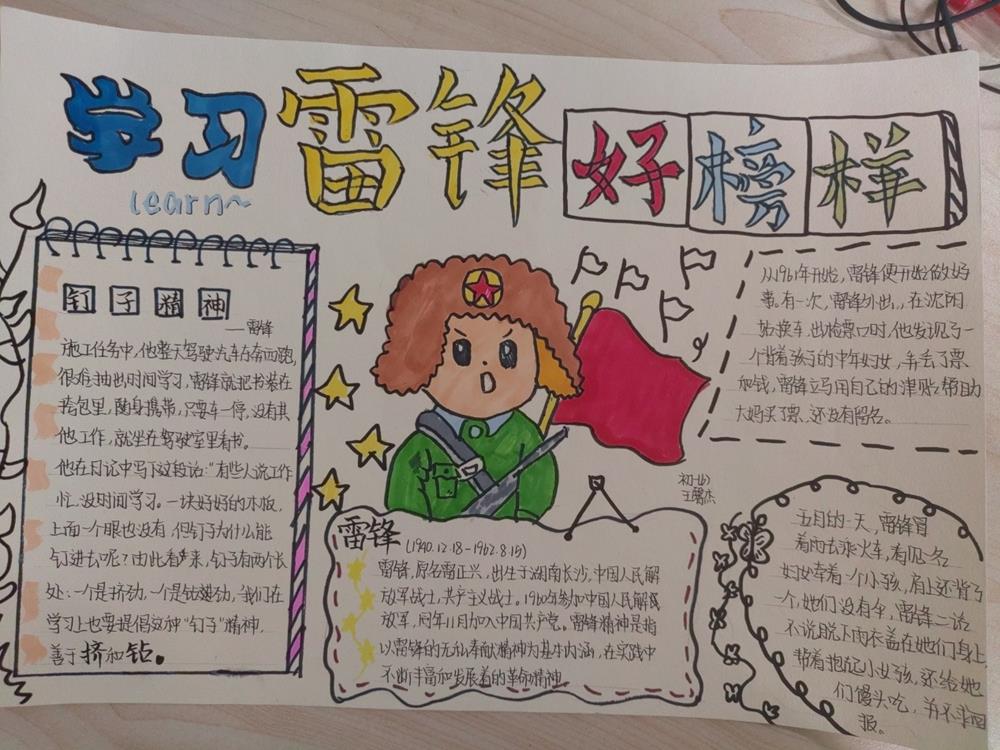 学习雷锋好榜样
learn~
钉子精神
——雷锋
施工任务中，他整天驾驶汽车东奔西跑，
很难抽出时间学习，雷锋就把书装在
挎包里，随身携带，只要车一停，没有其
他工作，就坐在驾驶室里看书。
他在日记中写下这段话：“有些人说工作
忙、没时间学习。一块好好的木板，
上面一个眼也没有，但钉子为什么能
钉进去呢？由此看来，钉子有两个长
处：一个是挤劲，一个是钻劲，我们在
学习上也要提倡这种“钉子”精神，
善于挤和钻。
从1961年开始，雷锋便开始做好
事。有一次，雷锋外出，在沈阳
站换车，出检票口时，他发现了一
个背着孩子的中年妇女，弄丢了票
和钱，雷锋立马用自己的津贴帮助
大妈买了票，还没有留名。
初一(4)
雷锋(1940.12.18-1962.8.15)
雷锋，原名雷正兴，出生于湖南长沙，中国人民解
放军战士，共产主义战士。1960年参加中国人民解放
放军，同年11月加入中国共产党。雷锋精神是指
以雷锋的无私奉献精神为基本内涵，在实践中
不断丰富和发展着的革命精神。
五月的一天，雷锋冒
着雨去乘火车，看见一名
妇女牵着一个小孩，肩上还背了
一个，她们没有伞，雷锋二话
不说脱下雨衣盖在她们身上，
帮着抱起小女孩，还给她
们馒头吃，并不求回
报。